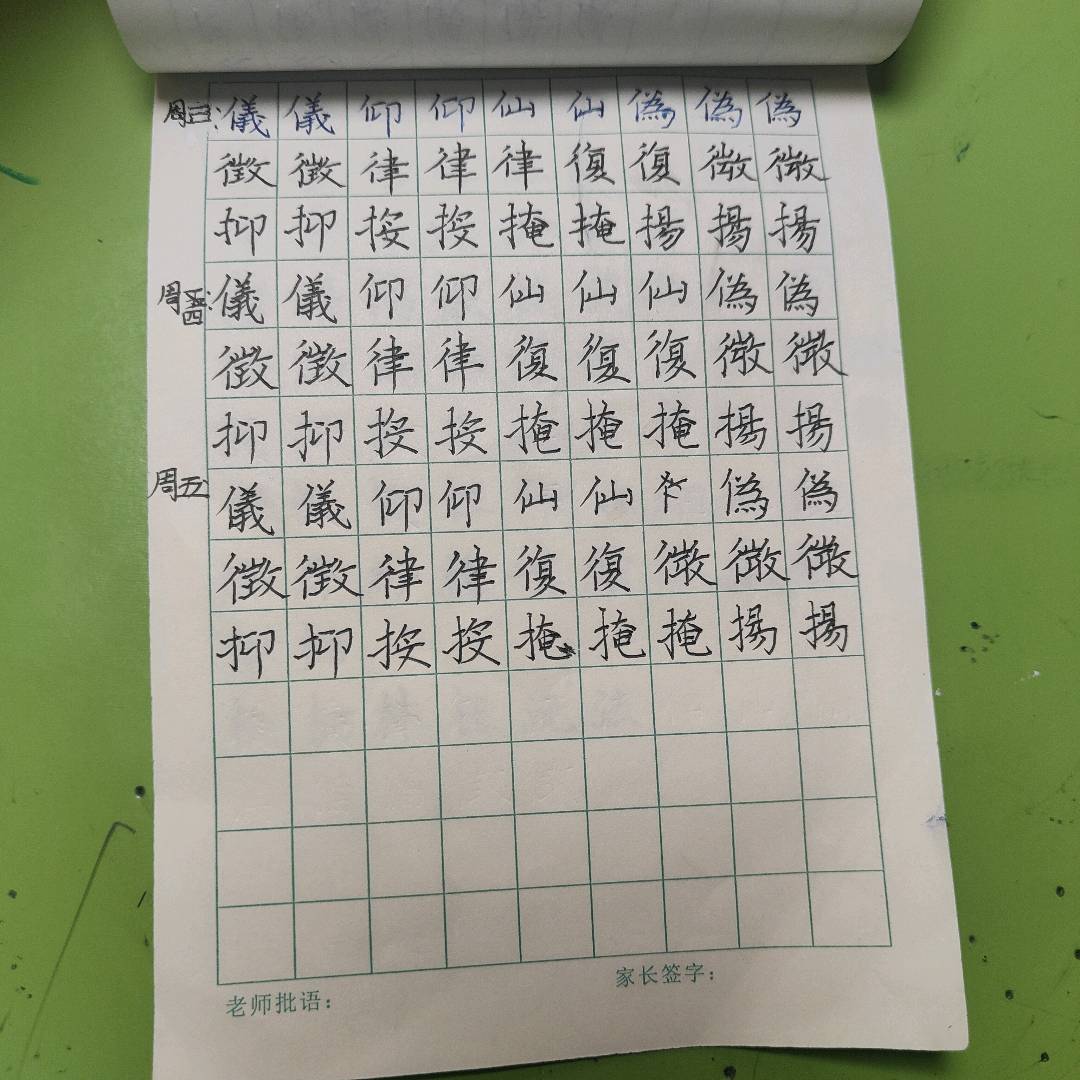 周三: 儀 儀 仰 仰 仙 仙 偽 偽 偽
徵 徵 律 律 律 復 復 微 微
抑 抑 按 授 掩 掩 揚 揚 揚
周四: 儀 儀 仰 仰 仙 仙 仙 偽 偽
徵 徵 律 律 復 復 復 微 微
抑 抑 授 按 掩 掩 掩 揚 揚
周五: 儀 儀 仰 仰 仙 仙 偽 偽
徵 徵 律 律 復 復 微 微 微
抑 抑 按 按 掩 掩 掩 揚 揚
家长签字：
老师批语：